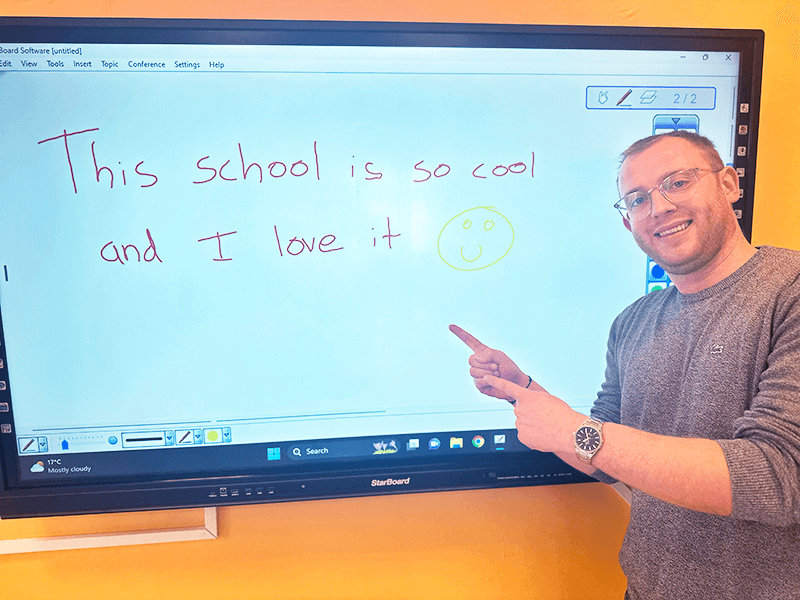 Board Software [untitled]
Edit View Tools Insert Topic Conference Settings Help
2 / 2
This school is so cool
and I love it
Search
17°C
Mostly cloudy
StarBoard